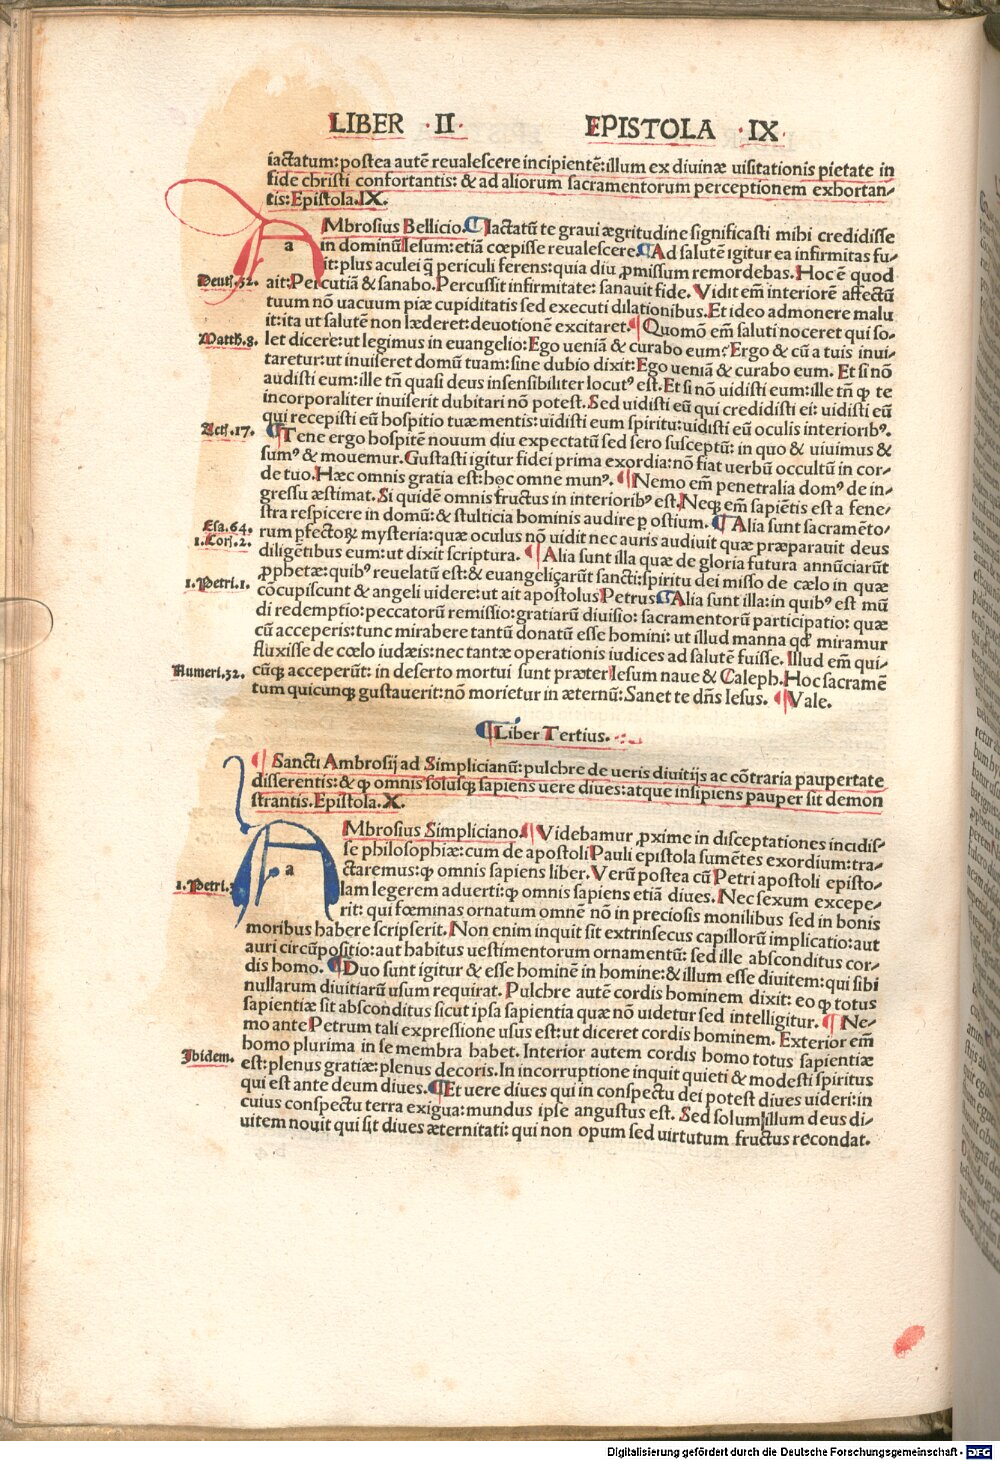 LIBER · II · EPISTOLA · IX ·
iactatum: postea autē reualescere incipientē: illum ex diuinæ uisitationis pietate in
fide christi confortantis: & ad aliorum sacramentorum perceptionem exhortan-
tis: Epistola. IX.
a
AMbrosius Bellicio. Iactatū te graui ægritudine significasti mihi credidisse
in dominū Iesum: etiā cœpisse reualescere. Ad salutē igitur ea infirmitas fu-
it: plus aculei q̄ periculi ferens: quia diu ꝓmissum remordebas. Hoc ē quod
Deut̄. 32. ait: Percutiā & sanabo. Percussit infirmitate: sanauit fide. Vidit em̄ interiorē affectū
tuum nō uacuum piæ cupiditatis sed executi dilationibus. Et ideo admonere malu
it: ita ut salutē non læderet: deuotionē excitaret. Quomō em̄ saluti noceret qui so-
Matth. 8. let dicere: ut legimus in euangelio: Ego ueniā & curabo eum? Ergo & cū a tuis inui-
taretur: ut inuiseret domū tuam: sine dubio dixit: Ego ueniā & curabo eum. Et si nō
audisti eum: ille tn̄ quasi deus insensibiliter locutꝰ est. Et si nō uidisti eum: ille tn̄ ꝙ te
incorporaliter inuiserit dubitari nō potest. Sed uidisti eū qui credidisti ei: uidisti eū
qui recepisti eū hospitio tuæ mentis: uidisti eum spiritu: uidisti eū oculis interioribꝰ.
Act̄. 17. Tene ergo hospitē nouum diu expectatū sed sero susceptū: in quo & uiuimus &
sumꝰ & mouemur. Gustasti igitur fidei prima exordia: nō fiat uerbū occultū in cor-
de tuo. Hæc omnis gratia est: hoc omne munꝰ. Nemo em̄ penetralia domꝰ de in-
gressu æstimat. Si quidē omnis fructus in interioribꝰ est. Neqꝫ em̄ sapiētis est a fene-
stra respicere in domū: & stulticia hominis audire ꝑ ostium. Alia sunt sacramēto-
Esa. 64. rum ꝑfectoꝝ mysteria: quæ oculus nō uidit nec auris audiuit quæ præparauit deus
1. Cor̄. 2. diligētibus eum: ut dixit scriptura. Alia sunt illa quæ de gloria futura annūciarūt
ꝓphetæ: quibꝰ reuelatū est: & euangeliçarūt sancti: spiritu dei misso de cælo in quæ
1. Petri. 1. cōcupiscunt & angeli uidere: ut ait apostolus Petrus. Alia sunt illa: in quibꝰ est mū
di redemptio: peccatorū remissio: gratiarū diuisio: sacramentorū participatio: quæ
cū acceperis: tunc mirabere tantū donatū esse homini: ut illud manna qđ miramur
fluxisse de cœlo iudæis: nec tantæ operationis iudices ad salutē fuisse. Illud em̄ qui-
Numeri. 32. cūqꝫ acceperūt: in deserto mortui sunt præter Iesum naue & Caleph. Hoc sacramē
tum quicunqꝫ gustauerit: nō morietur in æternū: Sanet te dn̄s Iesus. Vale.
Liber Tertius.
Sancti Ambrosij ad Simplicianū: pulchre de ueris diuitijs ac cōtraria paupertate
disserentis: & ꝙ omnis solusqꝫ sapiens uere diues: atque insipiens pauper sit demon
strantis. Epistola. X.
a
AMbrosius Simpliciano. Videbamur ꝓxime in disceptationes incidis-
se philosophiæ: cum de apostoli Pauli epistola sumētes exordium: tra-
ctaremus: ꝙ omnis sapiens liber. Verū postea cū Petri apostoli episto-
1. Petri. 3. lam legerem aduerti: ꝙ omnis sapiens etiā diues. Nec sexum excepe-
rit: qui fœminas ornatum omnē nō in preciosis monilibus sed in bonis
moribus habere scripserit. Non enim inquit sit extrinsecus capillorū implicatio: aut
auri circūpositio: aut habitus uestimentorum ornamentū: sed ille absconditus cor-
dis homo. Duo sunt igitur & esse hominē in homine: & illum esse diuitem: qui sibi
nullarum diuitiarū usum requirat. Pulchre autē cordis hominem dixit: eo ꝙ totus
sapientiæ sit absconditus sicut ipsa sapientia quæ nō uidetur sed intelligitur. Ne-
mo ante Petrum tali expressione usus est: ut diceret cordis hominem. Exterior em̄
homo plurima in se membra habet. Interior autem cordis homo totus sapientiæ
Ibidem. est: plenus gratiæ: plenus decoris. In incorruptione inquit quieti & modesti spiritus
qui est ante deum diues. Et uere diues qui in conspectu dei potest diues uideri: in
cuius conspectu terra exigua: mundus ipse angustus est. Sed solum illum deus di-
uitem nouit qui sit diues æternitati: qui non opum sed uirtutum fructus recondat.
Digitalisierung gefördert durch die Deutsche Forschungsgemeinschaft - DFG